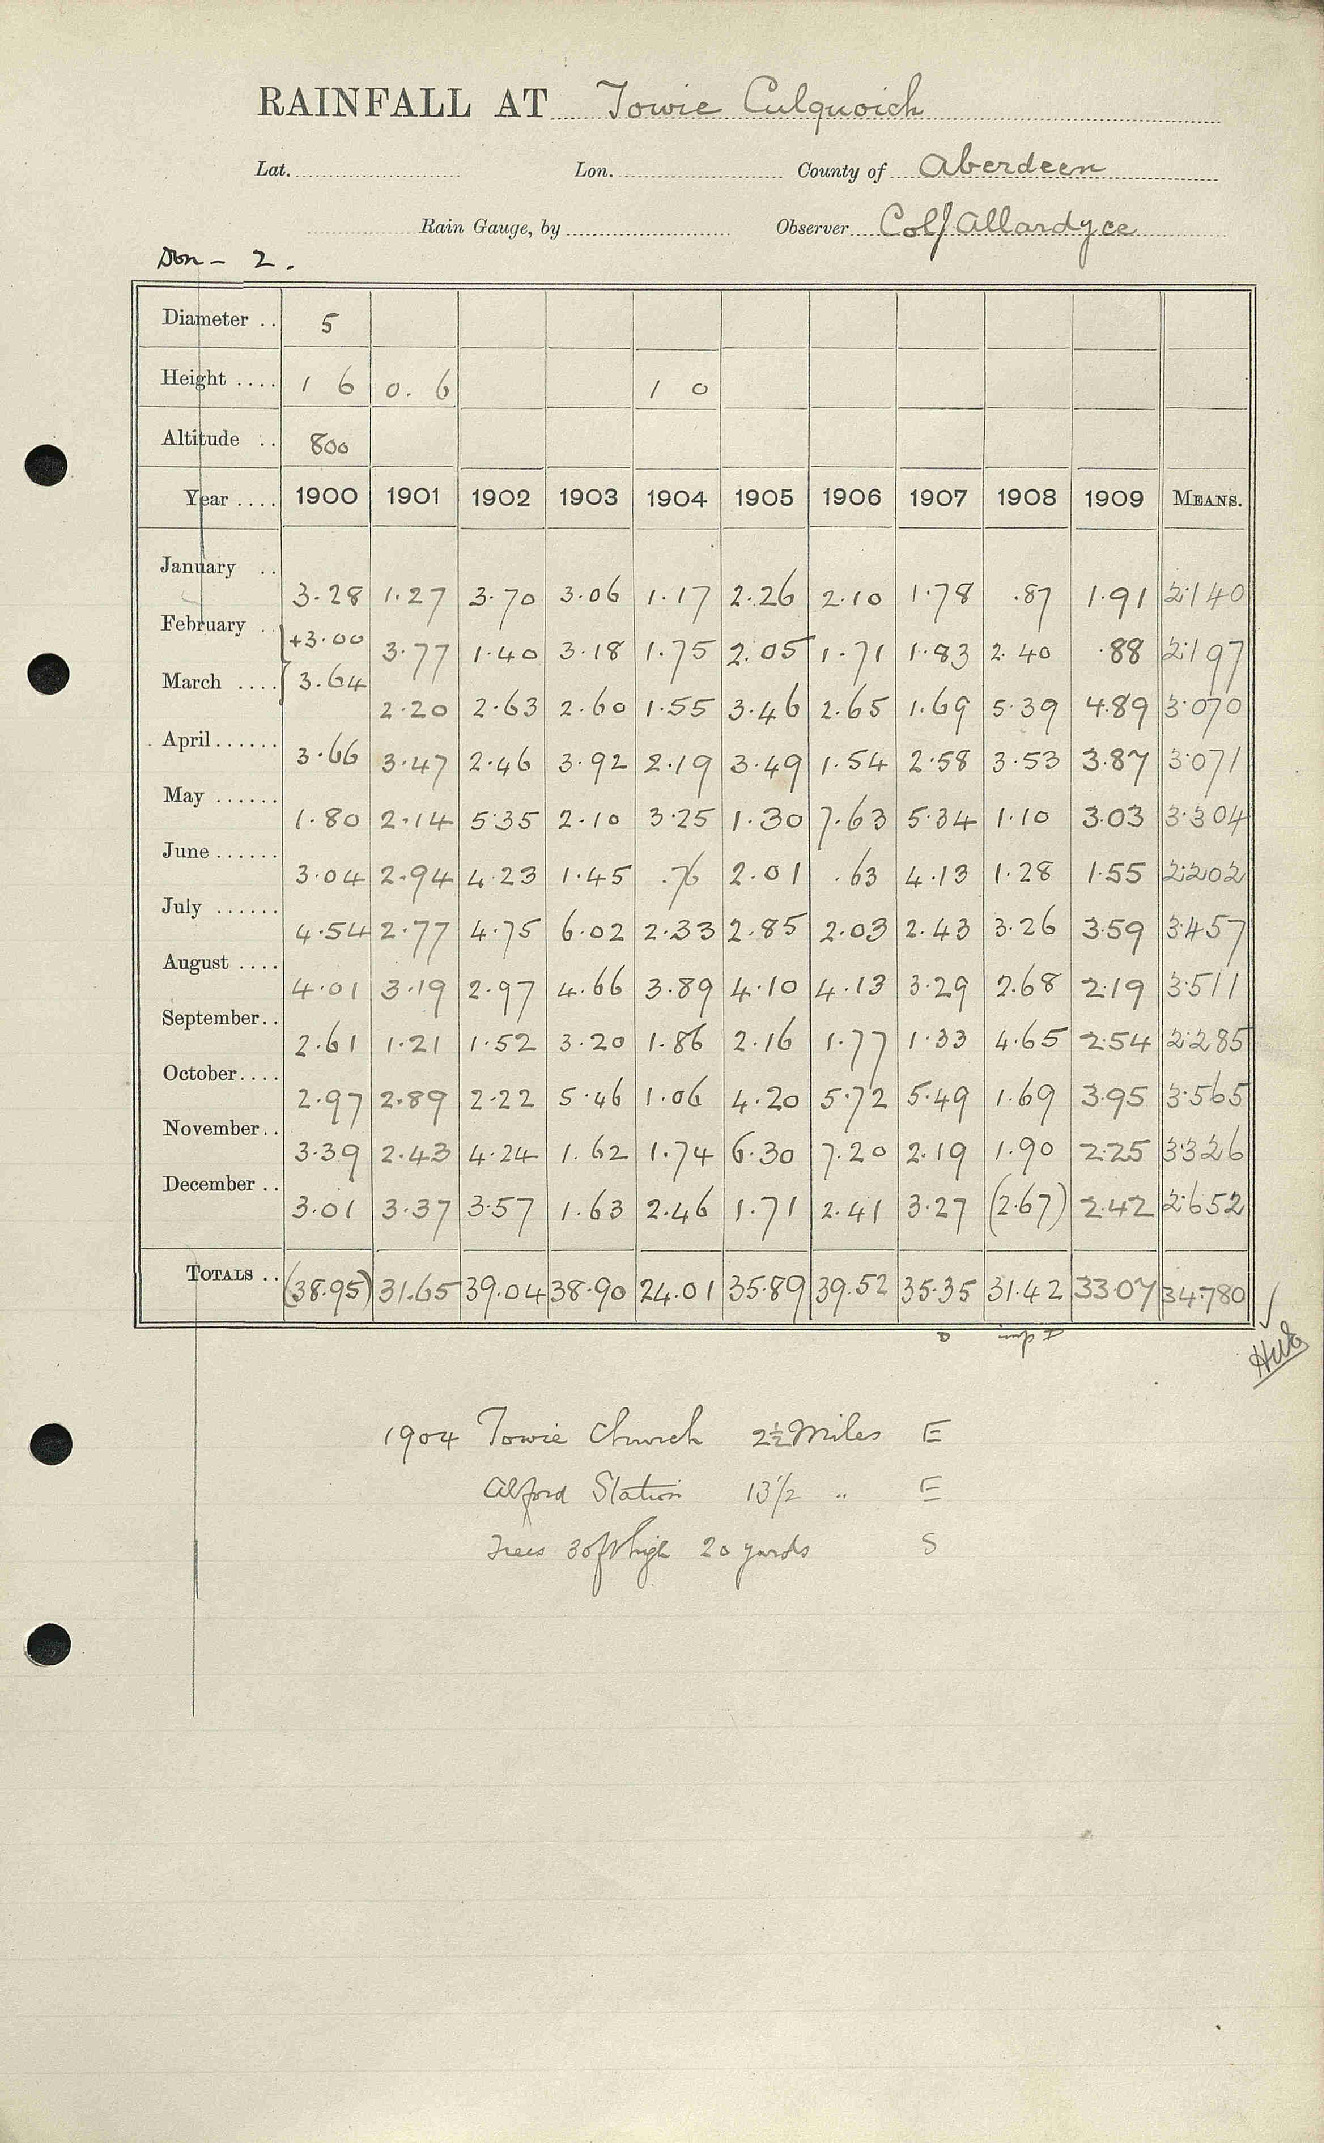 RAINFALL AT Towie Culquoich
Lat. Lon. County of Aberdeen
Rain Gauge, by Observer Col J Allardyce
Don - 2.
Diameter .. 5
Height .... 1 6 0. 6 1 0
Altitude .. 800
Year .... 1900 1901 1902 1903 1904 1905 1906 1907 1908 1909 MEANS.
January .. 3.28 1.27 3.70 3.06 1.17 2.26 2.10 1.78 .87 1.91 2.140
February .. +3.00 3.77 1.40 3.18 1.75 2.05 1.71 1.83 2.40 .88 2.197
March .... 3.64 2.20 2.63 2.60 1.55 3.46 2.65 1.69 5.39 4.89 3.070
April...... 3.66 3.47 2.46 3.92 2.19 3.49 1.54 2.58 3.53 3.87 3.071
May ...... 1.80 2.14 5.35 2.10 3.25 1.30 7.63 5.34 1.10 3.03 3.304
June ...... 3.04 2.94 4.23 1.45 .76 2.01 .63 4.13 1.28 1.55 2.202
July ...... 4.54 2.77 4.75 6.02 2.33 2.85 2.03 2.43 3.26 3.59 3.457
August .... 4.01 3.19 2.97 4.66 3.89 4.10 4.13 3.29 2.68 2.19 3.511
September.. 2.61 1.21 1.52 3.20 1.86 2.16 1.77 1.33 4.65 2.54 2.285
October.... 2.97 2.89 2.22 5.46 1.06 4.20 5.72 5.49 1.69 3.95 3.565
November.. 3.39 2.43 4.24 1.62 1.74 6.30 7.20 2.19 1.90 2.25 3.326
December .. 3.01 3.37 3.57 1.63 2.46 1.71 2.41 3.27 (2.67) 2.42 2.652
TOTALS .. (38.95) 31.65 39.04 38.90 24.01 35.89 39.52 35.35 31.42 33.07 34.780
1904 Towie Church 2½ Miles E
Alford Station 13½ " E
Trees 30ft high 20 yards S